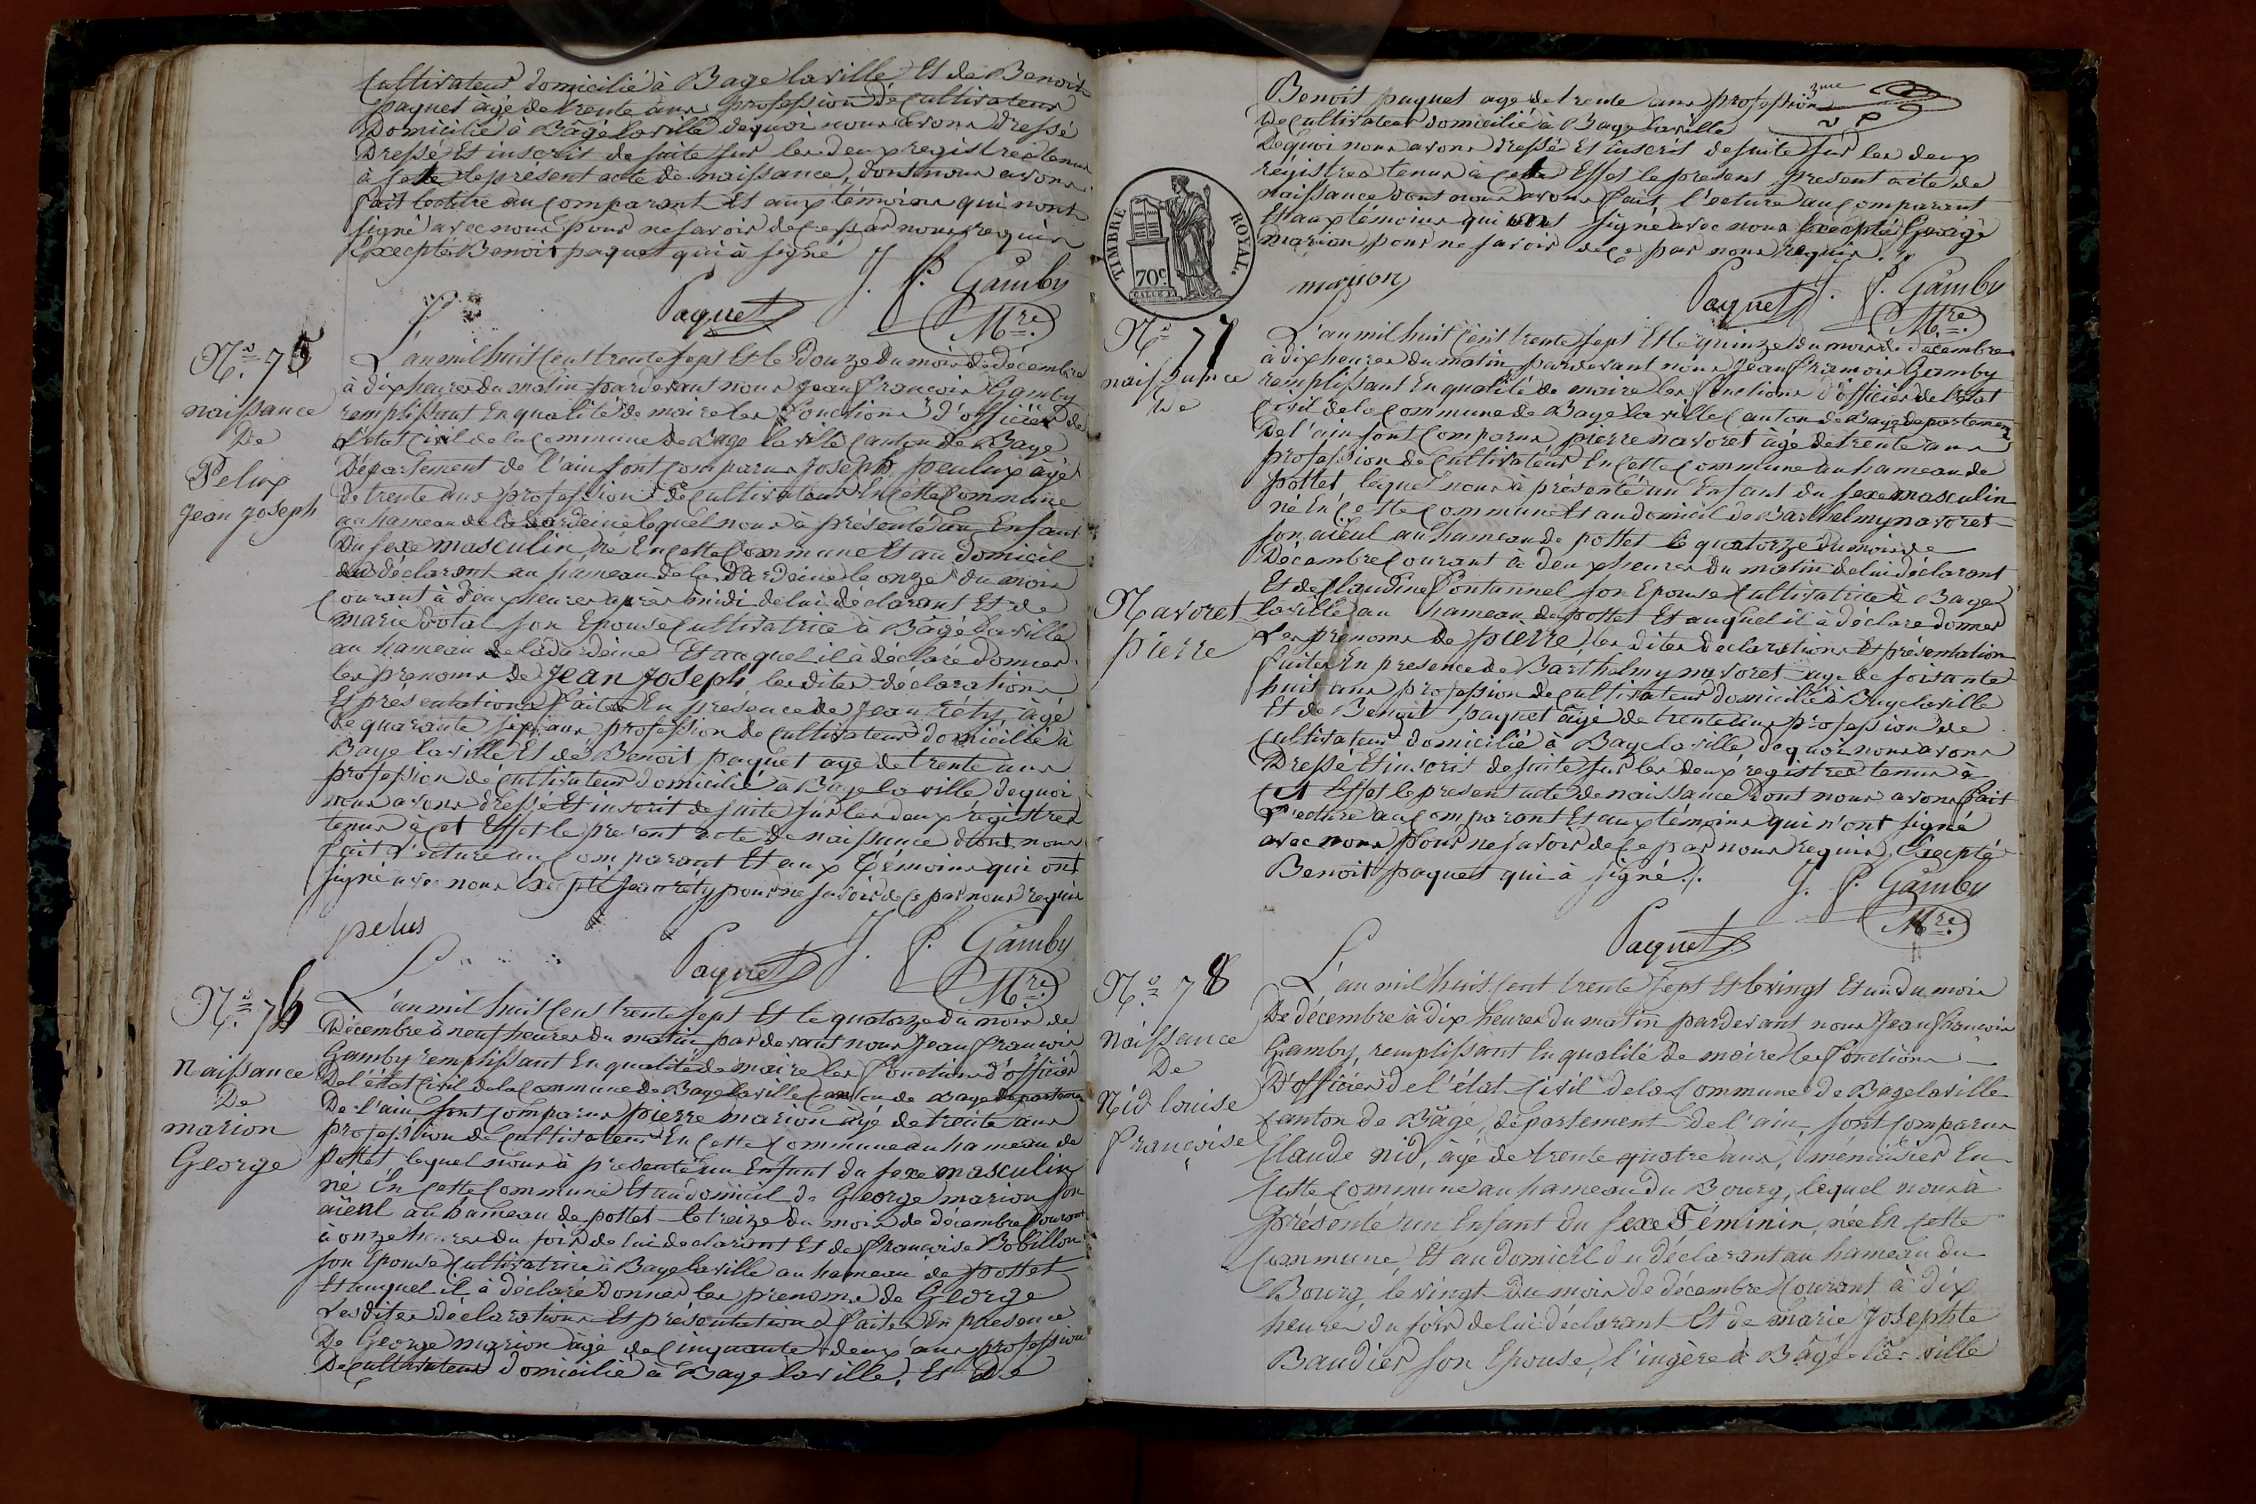 Cultivateur domicilié à Bage la ville Et de Benoit
paquet âgé de trente ans profession de Cultivateur
Domicilié à Bâgé la ville dequoi nous avons Dressé
Dressé Et inscrit de suite sur les deux registres tenus
à le present acte de naissance, dont nous avons
fait lecture au comparant Et aux témoins qui nont
signé avec nous pour ne savoir de ce par nous requis
Excepté Benoit paquet qui à signé
Paquet J. F. Gamby
Mre
No. 75
naissance
De
Pelux
jean joseph
L'an mil huit Cent trente sept Et le Douze du mois de décembre
à dix heures du matin pardevant nous Jean françois Gamby
remplissant En qualité de maire les fonctions d'officier de
L'état Civil de la Commune de Bage la ville Canton de Bage
Département de l'ain sont comparus Joseph pelux agé
de trente ans profession de Cultivateur En cette Commune
au hameau de la dardeine lequel nous à présenté un Enfant
Du sexe masculin, né En cette Commune Et au domicil
du déclarant au hameau de la Dardeine le onze du mois
Courant à deux heures après midi de lui déclarant Et de
marie son Epouse Cultivatrice à Bâgé la ville
au hameau de la dardeine Et auquel il à déclaré donner
les prenoms de Jean Joseph les dites déclarations
Et présentations faites En présence de jean réty âgé
de quarante six ans profession de Cultivateur domicilié à
Bage la ville Et de Benoit paquet agé de trente ans
profession de Cultivateur domicilié à Bage la ville dequoi
nous avons dressé Et inscrit de suite sur les deux registres
tenus à cet Effet le present acte de naissance dont nous
fait L'ecture au comparant Et aux témoins qui ont
signé avec nous Excepté jean réty pour ne savoir de ce par nous requis
pelus
Paquet J. F. Gamby
Mre
No. 76
Naissance
De
marion
George
L'an mil huit Cent trente sept Et le quatorze du mois de
Décembre à neuf heures du matin pardevant nous Jean françois
Gamby remplissant En qualité de maire les fonctions d'officier
De l'état Civil de la Commune de Bage la ville Canton de Bage departement
De l'ain sont comparus pierre marion âgé de trente ans
profession de Cultivateur En cette Commune au hameau de
pottet lequel nous à presenté un Enfant du sexe masculin
né En cette Commune Et au domicil de George marion son
aïeul au hameau de pottet le treize du mois de décembre Courant
à onze heures du soir de lui declarant Et de françoise Bobillon
son Epouse Cultivatrice à Bage la ville au hameau de pottet
Et auquel il à déclaré donner les prenoms de George
Les dites déclarations Et présentations faites En présence
De George marion âgé de Cinquante deux ans profession
De Cultivateur domicilié à Bage la ville, Et De
Benoit paquet age de trente ans profession
De Cultivateur domicilié à Bage la ville
Dequoi nous avons dressé Et inscrit de suite sur les deux
régistres tenus à Effet le present present acte de
naissance dont nous avons fait l'ecture au comparant
Et aux témoins qui ont signé avec nous Excepté George
marion pour ne savoir de ce par nous requis.
3me
V P
TIMBRE ROYAL.
70c.
marion
Paquet J. F. Gamby
Mre
No. 77
naissance
De
Navoret
pierre
L'an mil huit Cent trente sept Et le quinze du mois de décembre
à dix heures du matin pardevant nous Jean françois Gamby
remplissant En qualité de maire les fonctions d'officier de l'état
Civil de la Commune de Bage la ville Canton de Bage departement
De l'ain sont Comparus pierre navoret âgé de trente ans
profession de Cultivateur En cette Commune au hameau de
pottet lequel nous à présenté un Enfant du sexe masculin
né En Cette Commune Et au domicil de Barthelmy navoret
son aïeul au hameau de pottet le quatorze du mois de
Décembre Courant à deux heures du matin de lui déclarant
Et de Claudine Fontannel son Epouse Cultivatrice à Bage
la ville au hameau de pottet Et auquel il à déclaré donner
Les prenoms de pierre, les dites declarations Et présentation
faites En presence de Barthelmy navoret age de soixante
huit ans profession de Cultivateur domicilié à Bage la ville
Et de Benoit paquet âgé de trente ans profession de
Cultivateur domicilié à Bage la ville, dequoi nous avons
Dressé Et inscris de suite sur les deux registres tenus à
Cet Effet le present acte de naissance Dont nous avons fait
L'ecture au comparant Et aux témoins qui n'ont signé
avec nous pour ne savoir de ce par nous requis, Excepté
Benoit paquet qui à signé.
J. F. Gamby
Mre
Paquet
No. 78
Naissance
De
Nid louise
françoise
L'an mil huit cent trente sept Et le vingt Et un du mois
De décembre à dix heures du matin pardevant nous Jean françois
Gamby, remplissant En qualité de maire les fonctions
D'officier de l'état Civil de la Commune de Bage la ville
Canton de Bâgé, département de l'ain, sont comparus
Claude nid, âgé de trente quatre ans, ménuisier En
Cette Commune au hameau du Bourg, lequel nous à
présenté un Enfant du sexe Féminin, née En Cette
Commune, Et au domicil du déclarant au hameau du
Bourg le vingt du mois de décembre Courant à dix
heures du soir de lui déclarant Et de marie Josephte
Baudier son Epouse, l'ingère à Bâgé la ville